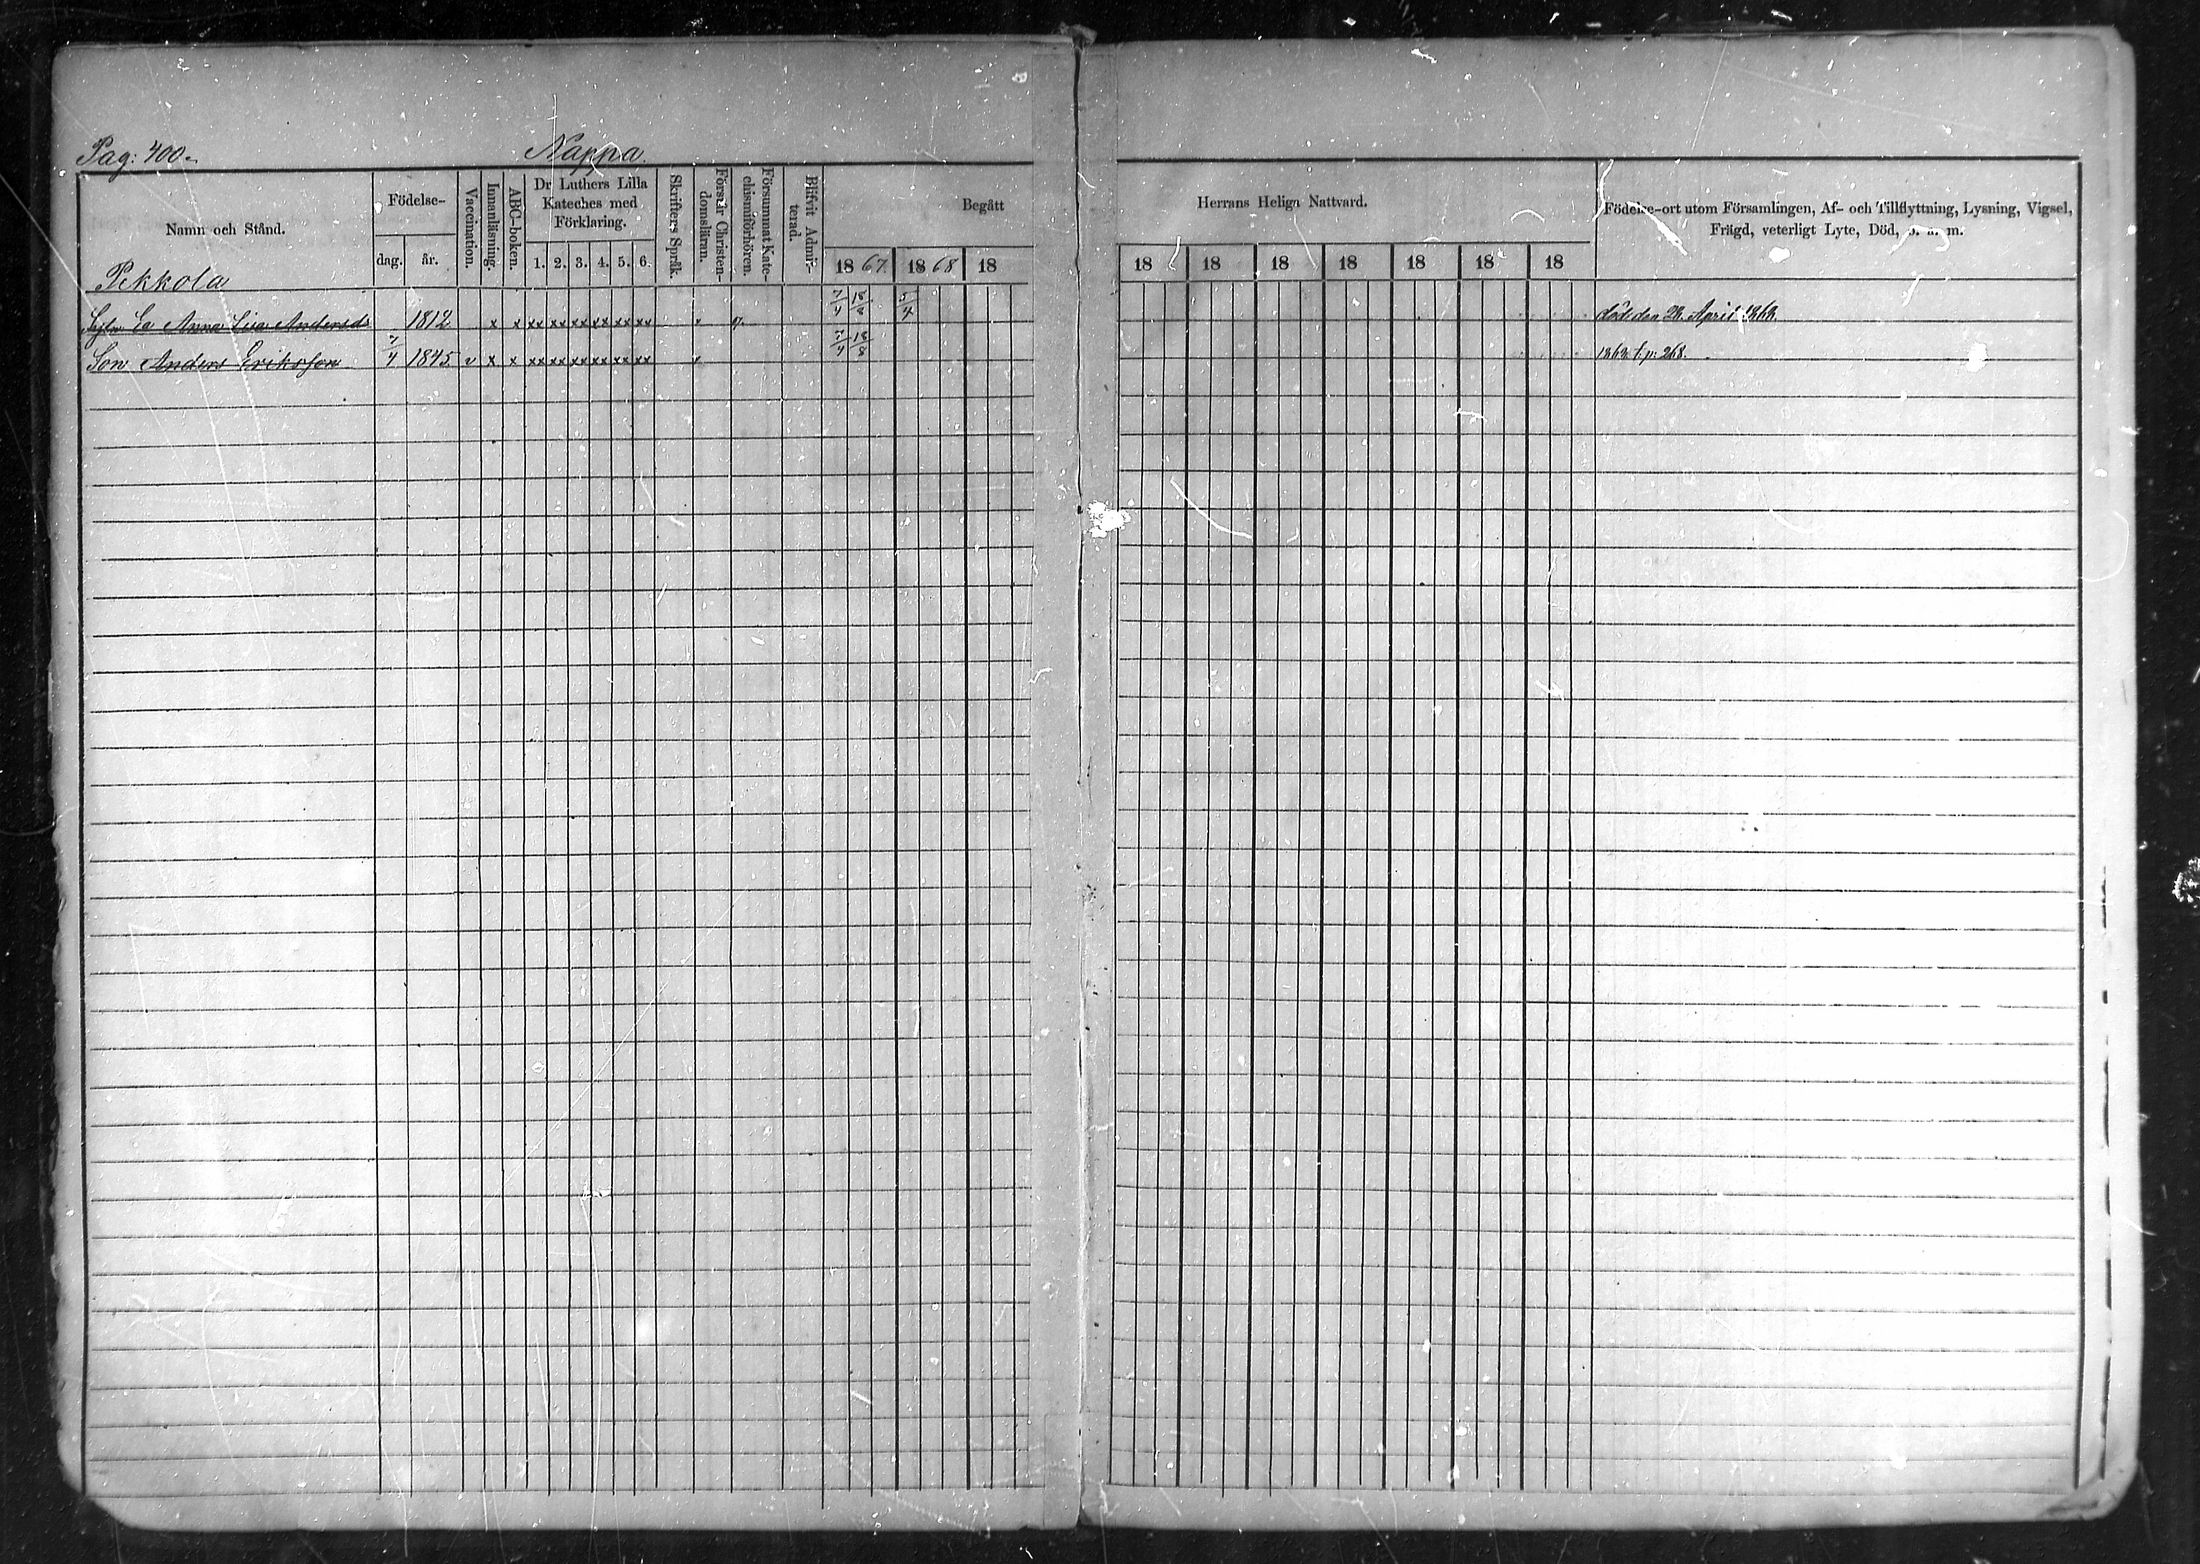 Pag: 400.
Nappa.
Namn och Stånd.
Födelse-
dag. år.
Vaccination.
Innanläsning.
ABC-boken.
Dr Luthers Lilla
Kateches med
Förklaring.
1. 2. 3. 4. 5. 6.
Skrifters Språk.
Förstår Christen-
domsläran.
Försummat Kate-
chismiförhören.
Blifvit Admit-
terad.
Begått Herrans Heliga Nattvard.
1867. 1868 18 18 18 18 18 18 18 18
Födelse-ort utom Församlingen, Af- och Tillflyttning, Lysning, Vigsel,
Frägd, veterligt Lyte, Död, o. s. m.
Pekkola
Anna Lisa Andersd. 1812 x x xx xx xx xx xx xx 7/4 18/8 5/4 död den 28. April 1868.
Son Anders Eriksson 7/4 1845. v x x xx xx xx xx xx xx v 7/4 18/8 1868 t. p: 268.